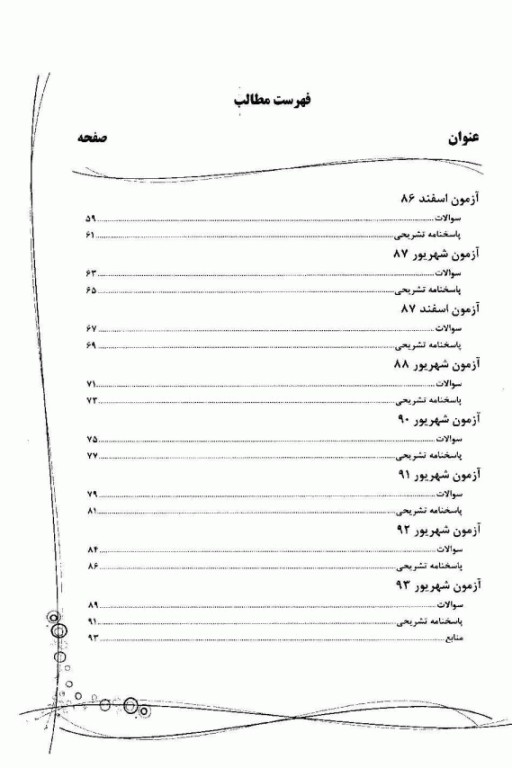 فهرست مطالب
عنوان صفحه
آزمون اسفند ۸۶
سوالات ۵۹
پاسخنامه تشریحی ۶۱
آزمون شهریور ۸۷
سوالات ۶۳
پاسخنامه تشریحی ۶۵
آزمون اسفند ۸۷
سوالات ۶۷
پاسخنامه تشریحی ۶۹
آزمون شهریور ۸۸
سوالات ۷۱
پاسخنامه تشریحی ۷۳
آزمون شهریور ۹۰
سوالات ۷۵
پاسخنامه تشریحی ۷۷
آزمون شهریور ۹۱
سوالات ۷۹
پاسخنامه تشریحی ۸۱
آزمون شهریور ۹۲
سوالات ۸۴
پاسخنامه تشریحی ۸۶
آزمون شهریور ۹۳
سوالات ۸۹
پاسخنامه تشریحی ۹۱
منابع ۹۳